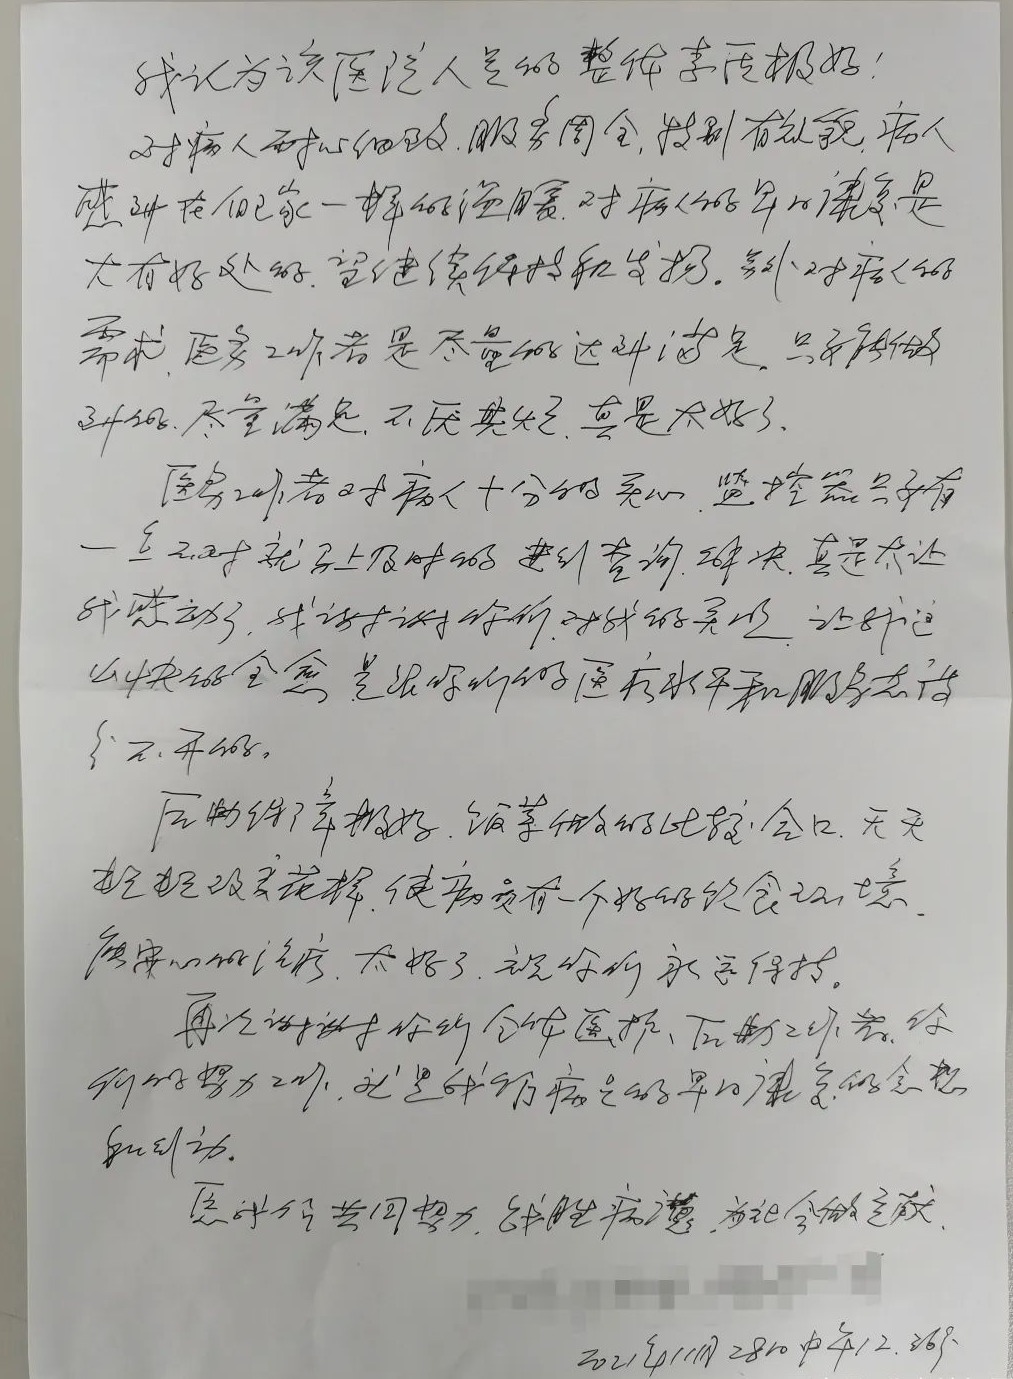 我认为该医院人员的整体素质极好!
对病人耐心细致.服务周全,特别有礼貌,病人
感到在自己家一样的温暖.对病人的早日康复是
大有好处的.望继续保持和发扬。另外对病人的
需求,医务工作者是尽量的达到满足,只要能做
到的.尽量满足.不厌其烦.真是太好了.
医务工作者对病人十分的关心 监控器只要有
一点不对就马上及时的进到查询.解决.真是太让
我感动了.我谢谢你们.对我的关心 让我这
么快的全愈 是跟你们的医疗水平和服务态度
分不开的。
后勤保障极好.饭菜做的比较合口.天天
改变花样,使病员有一个好的饮食环境.
能安心的治病.太好了.祝你们永远保持。
再次谢谢你们全体医护、后勤工作者.你
们的努力工作.就是我们病员的早日康复的念想
和动。
医共同努力.战胜病,为社会做贡献.
2021年11月28日中午12.36分